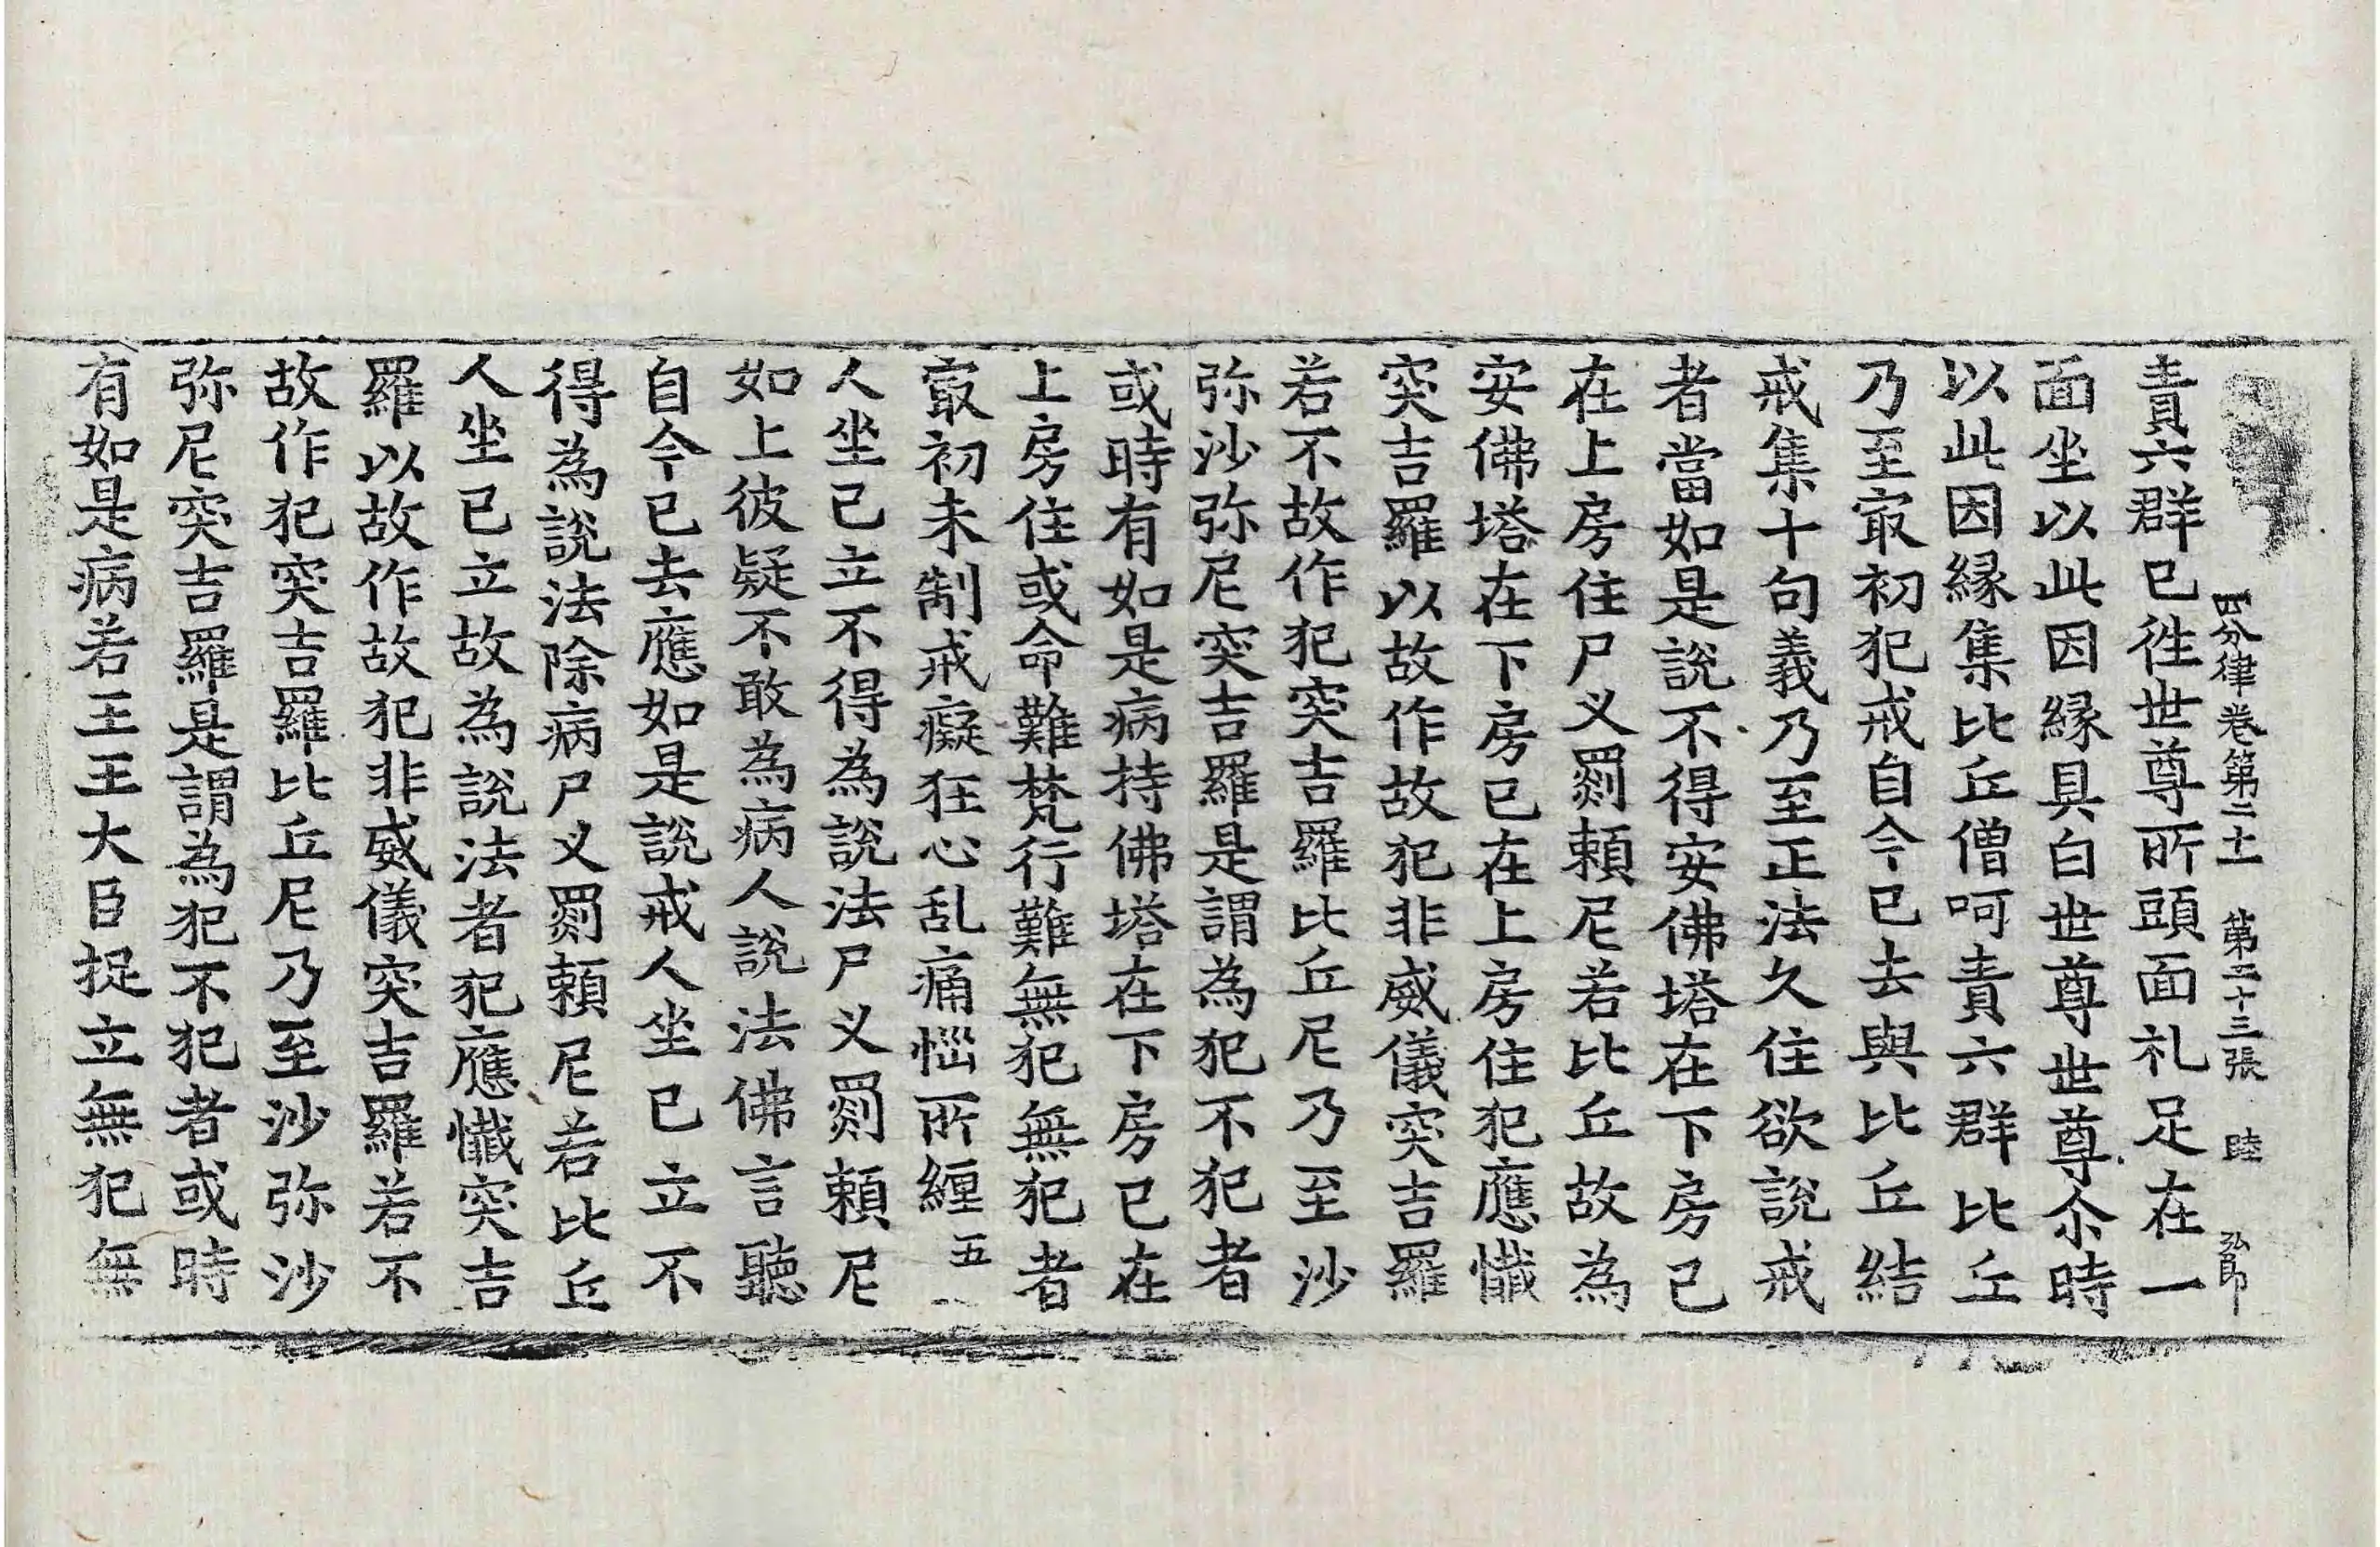 四分律卷第二十一 第二十三張 睦 弘郎
責六群已徃世尊所頭面礼足在一
面坐以此因縁具白世尊世尊尒時
以此因縁集比丘僧呵責六群比丘
乃至㝡初犯戒自今已去與比丘結
戒集十句義乃至正法久住欲說戒
者當如是說不得安佛塔在下房已
在上房住尸叉罽頼尼若比丘故為
安佛塔在下房已在上房住犯應懺
突吉羅以故作故犯非威儀突吉羅
若不故作犯突吉羅比丘尼乃至沙
弥沙弥尼突吉羅是謂為犯不犯者
或時有如是病持佛塔在下房已在
上房住或命難梵行難無犯無犯者
㝡初未制戒癡狂心乱痛惱所纏五
人坐已立不得為說法尸叉罽頼尼
如上彼疑不敢為病人說法佛言聽
自今已去應如是說戒人坐已立不
得為說法除病尸叉罽頼尼若比丘
人坐已立故為說法者犯應懺突吉
羅以故作故犯非威儀突吉羅若不
故作犯突吉羅比丘尼乃至沙弥沙
弥尼突吉羅是謂為犯不犯者或時
有如是病若王王大臣捉立無犯無